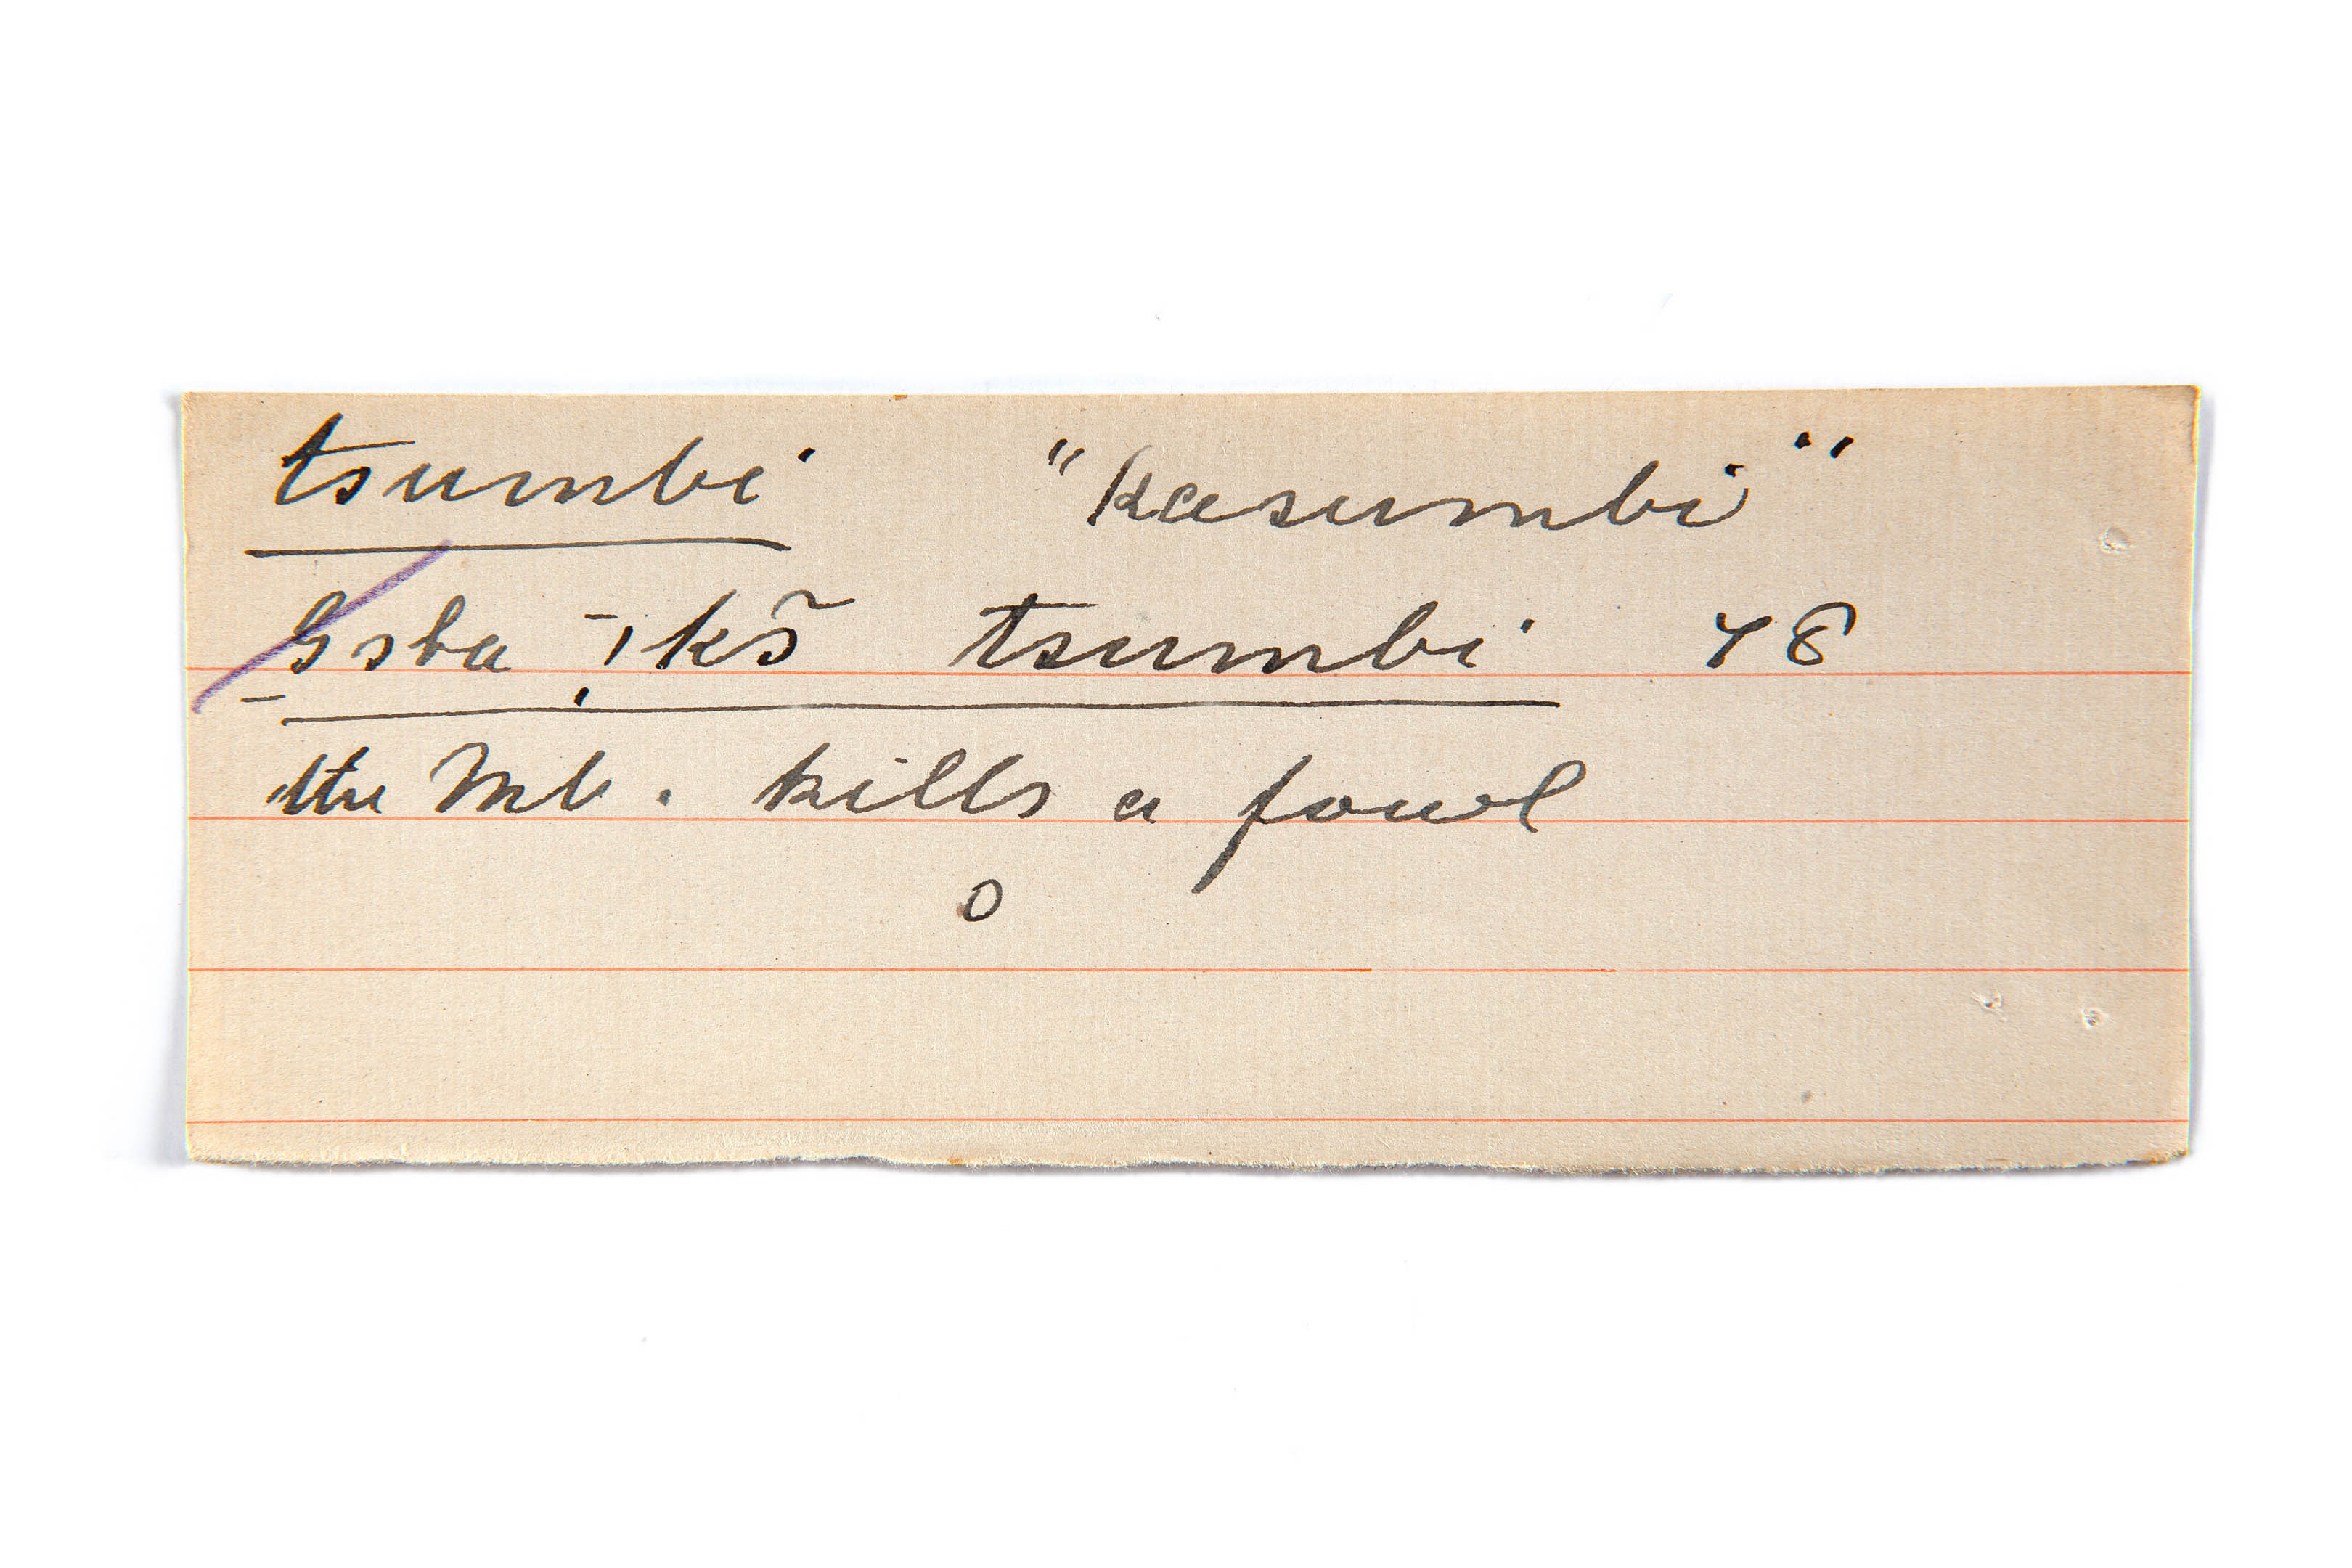 tsumbi "kasumbi"
tsumbi 48
the Mb. kills a fowl
o